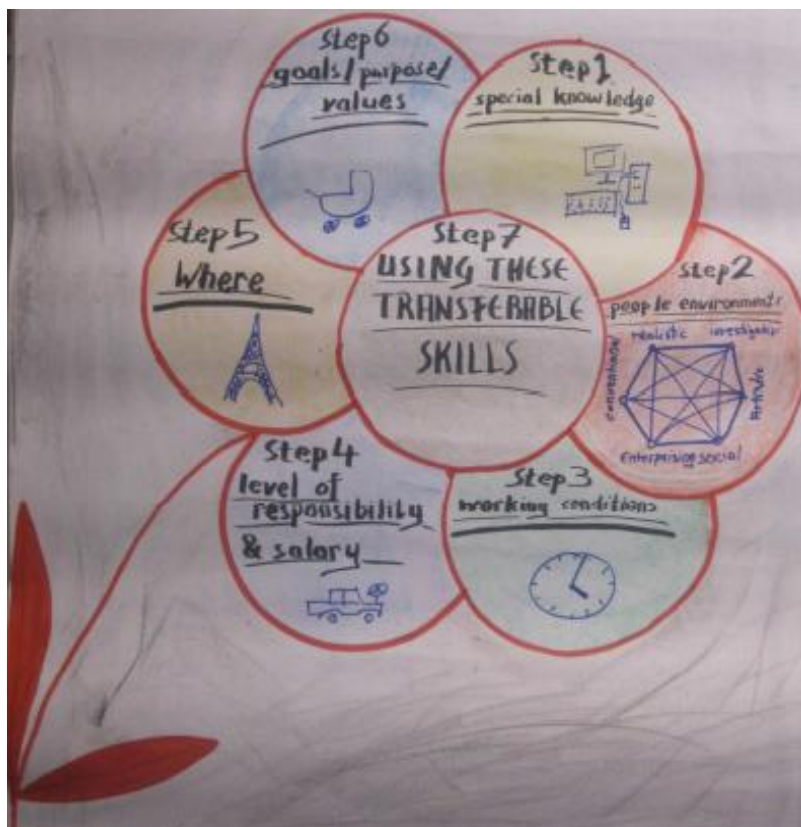 Step 6
goals/purpose/
values
Step 1
special knowledge
Step 5
Where
Step 7
USING THESE
TRANSFERABLE
SKILLS
Step 2
people environments
realistic
conventional
Artistic
Enterprising social
Step 4
level of
responsibility
& salary
Step 3
working conditions